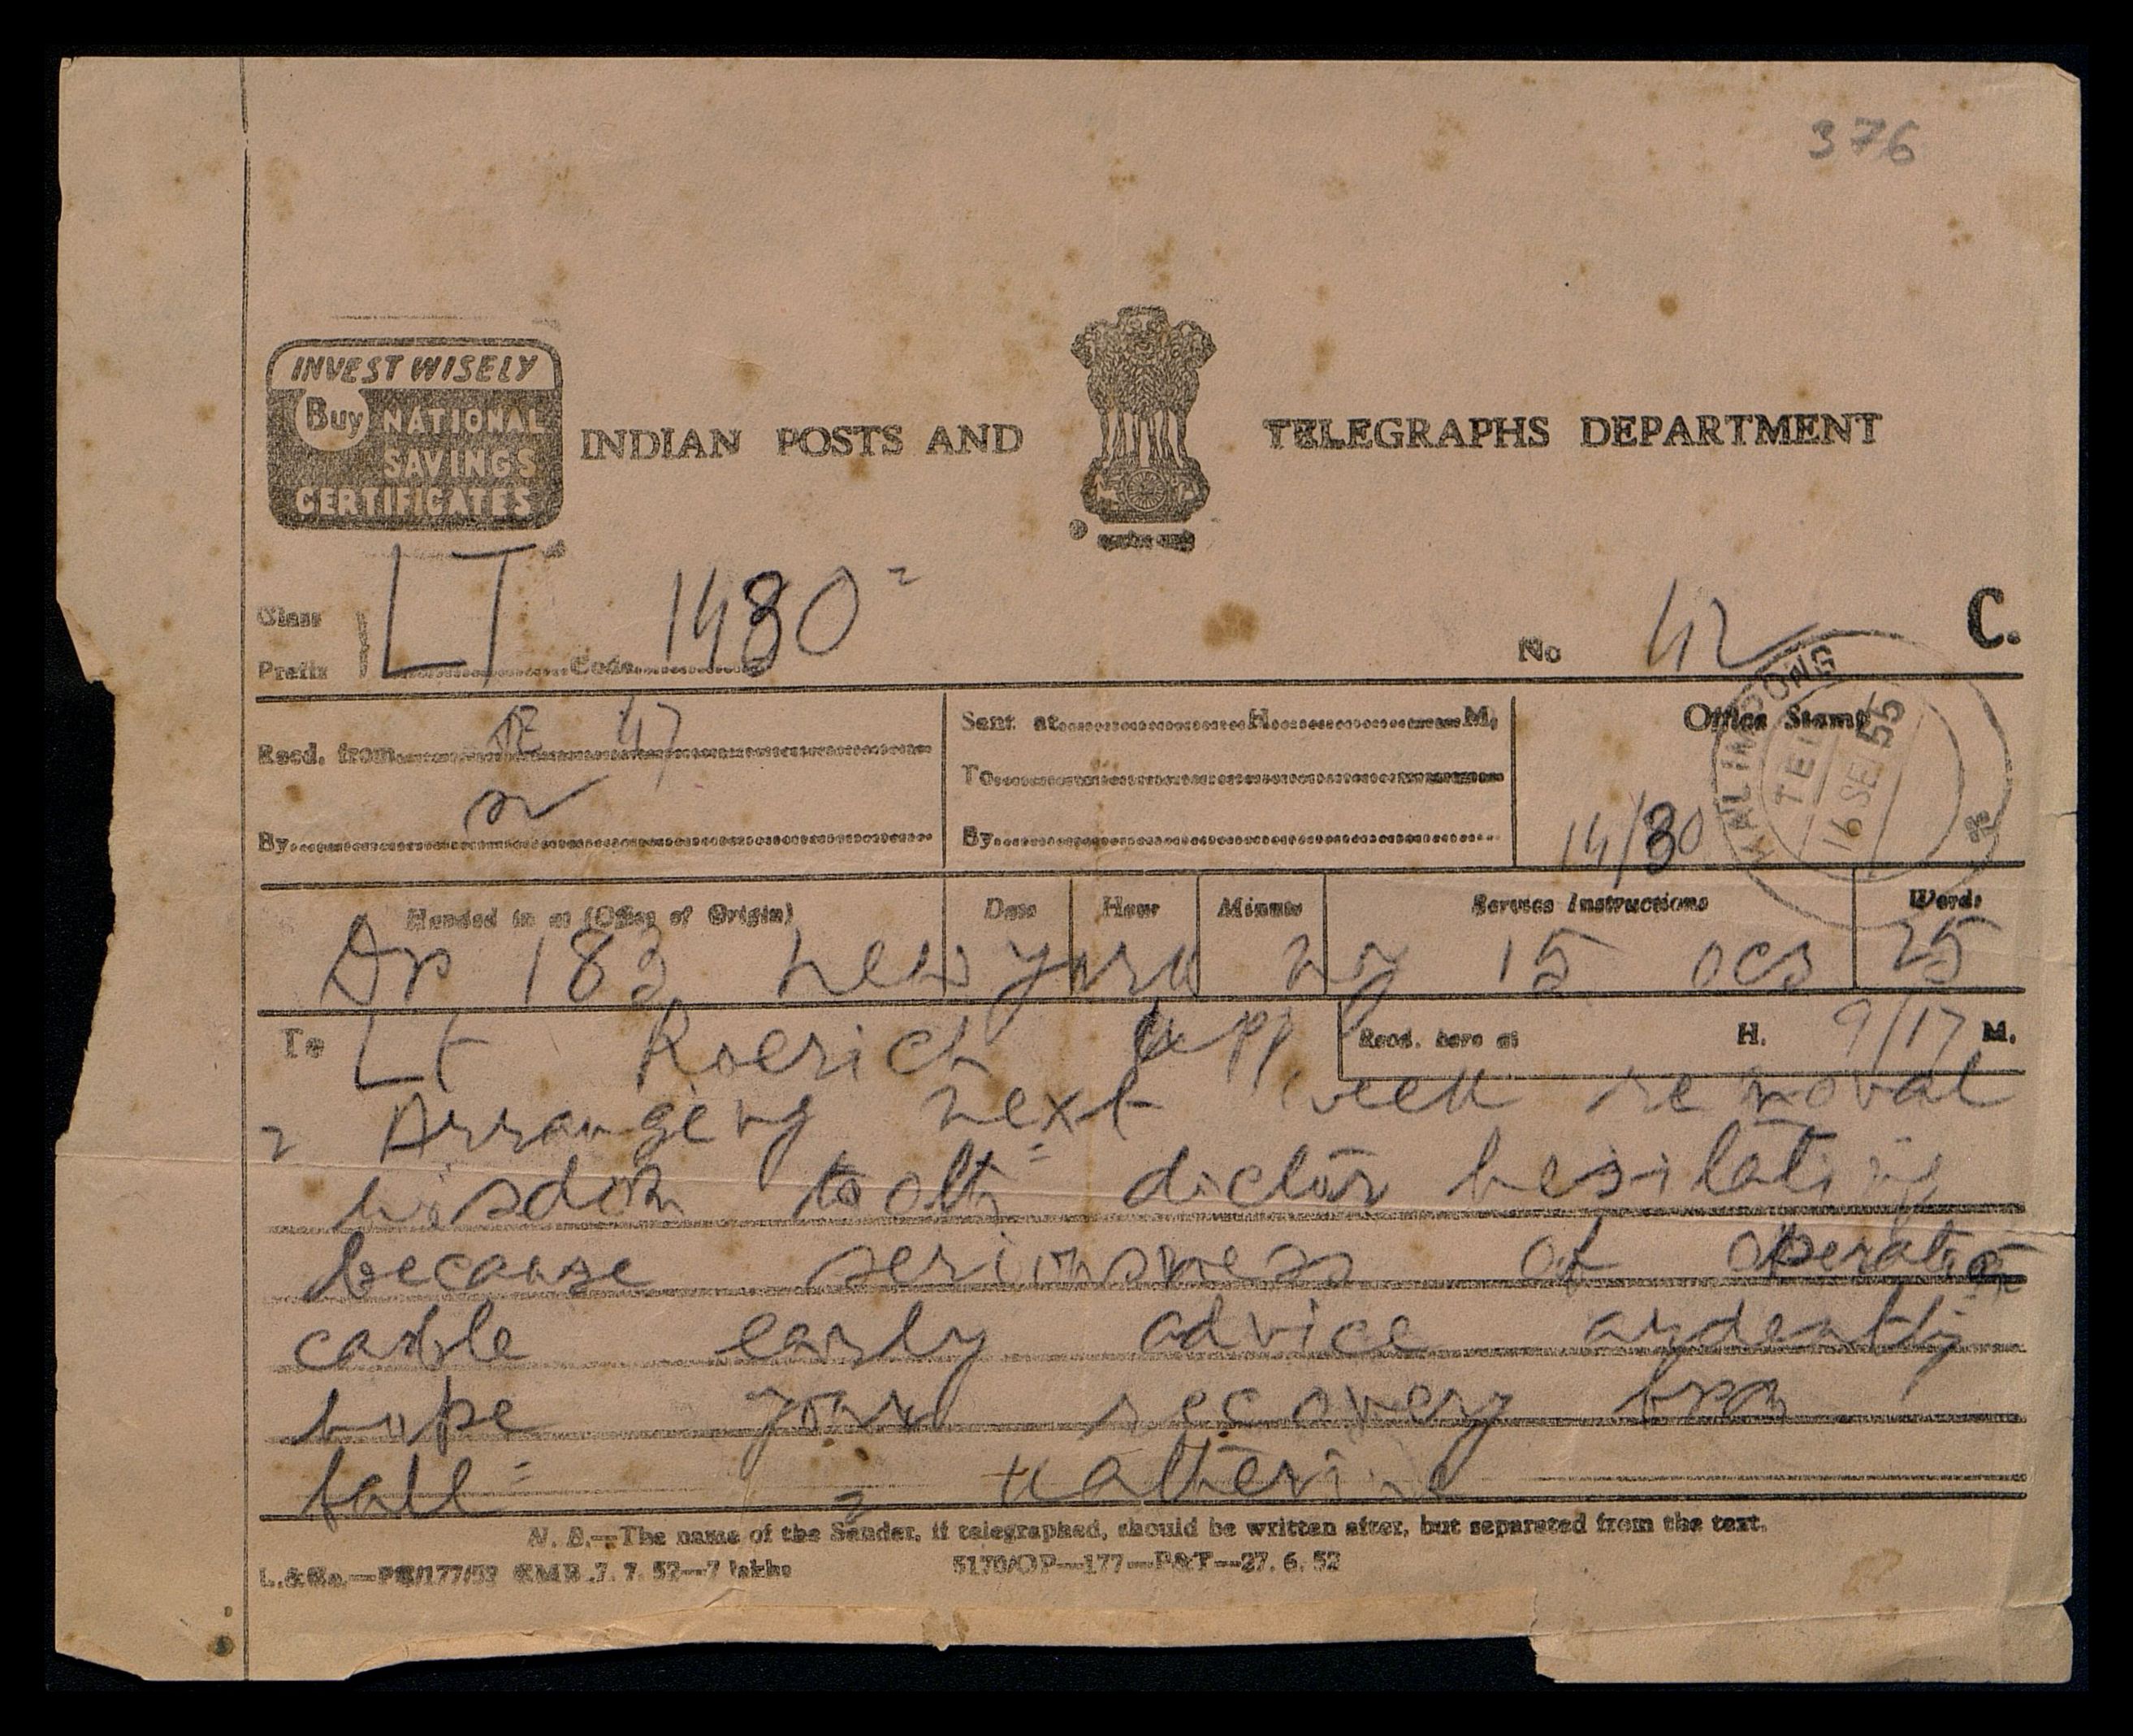 376
INVEST WISELY
Buy NATIONAL
SAVINGS
CERTIFICATES
INDIAN POSTS AND TELEGRAPHS DEPARTMENT
Class
Prefix LT Code 1430 =
No 42 C.
Recd. from 47
Sent at H. M.
Office Stamp
To
By
By
14/30
TEL
16 SE 55
Handed in at (Office of Origin) Date Hour Minute Service Instructions Words
183 newyork ny 15 25
To Lt Roerich Recd. here at H. 9/17 M.
= Arranging next week removal
wisdom tooth = doctor hesitating
because seriousness of operation
cable early advice ardently
hope your recovery from
fall = = Katherine
N. B.—The name of the Sender, if telegraphed, should be written after, but separated from the text.
5170/OP—177—P&T—27. 6. 52